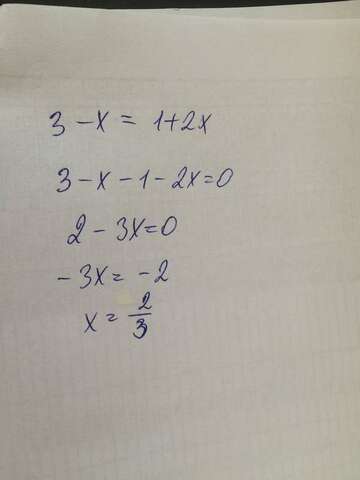 3 - x = 1+2x
3 - x - 1 - 2x=0
2 - 3x=0
- 3x= -2
x = 2/3